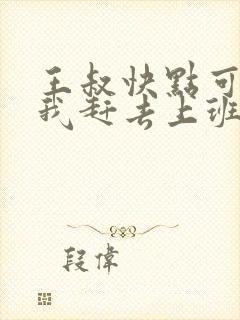 王叔快點可
我赶去上班
段偉